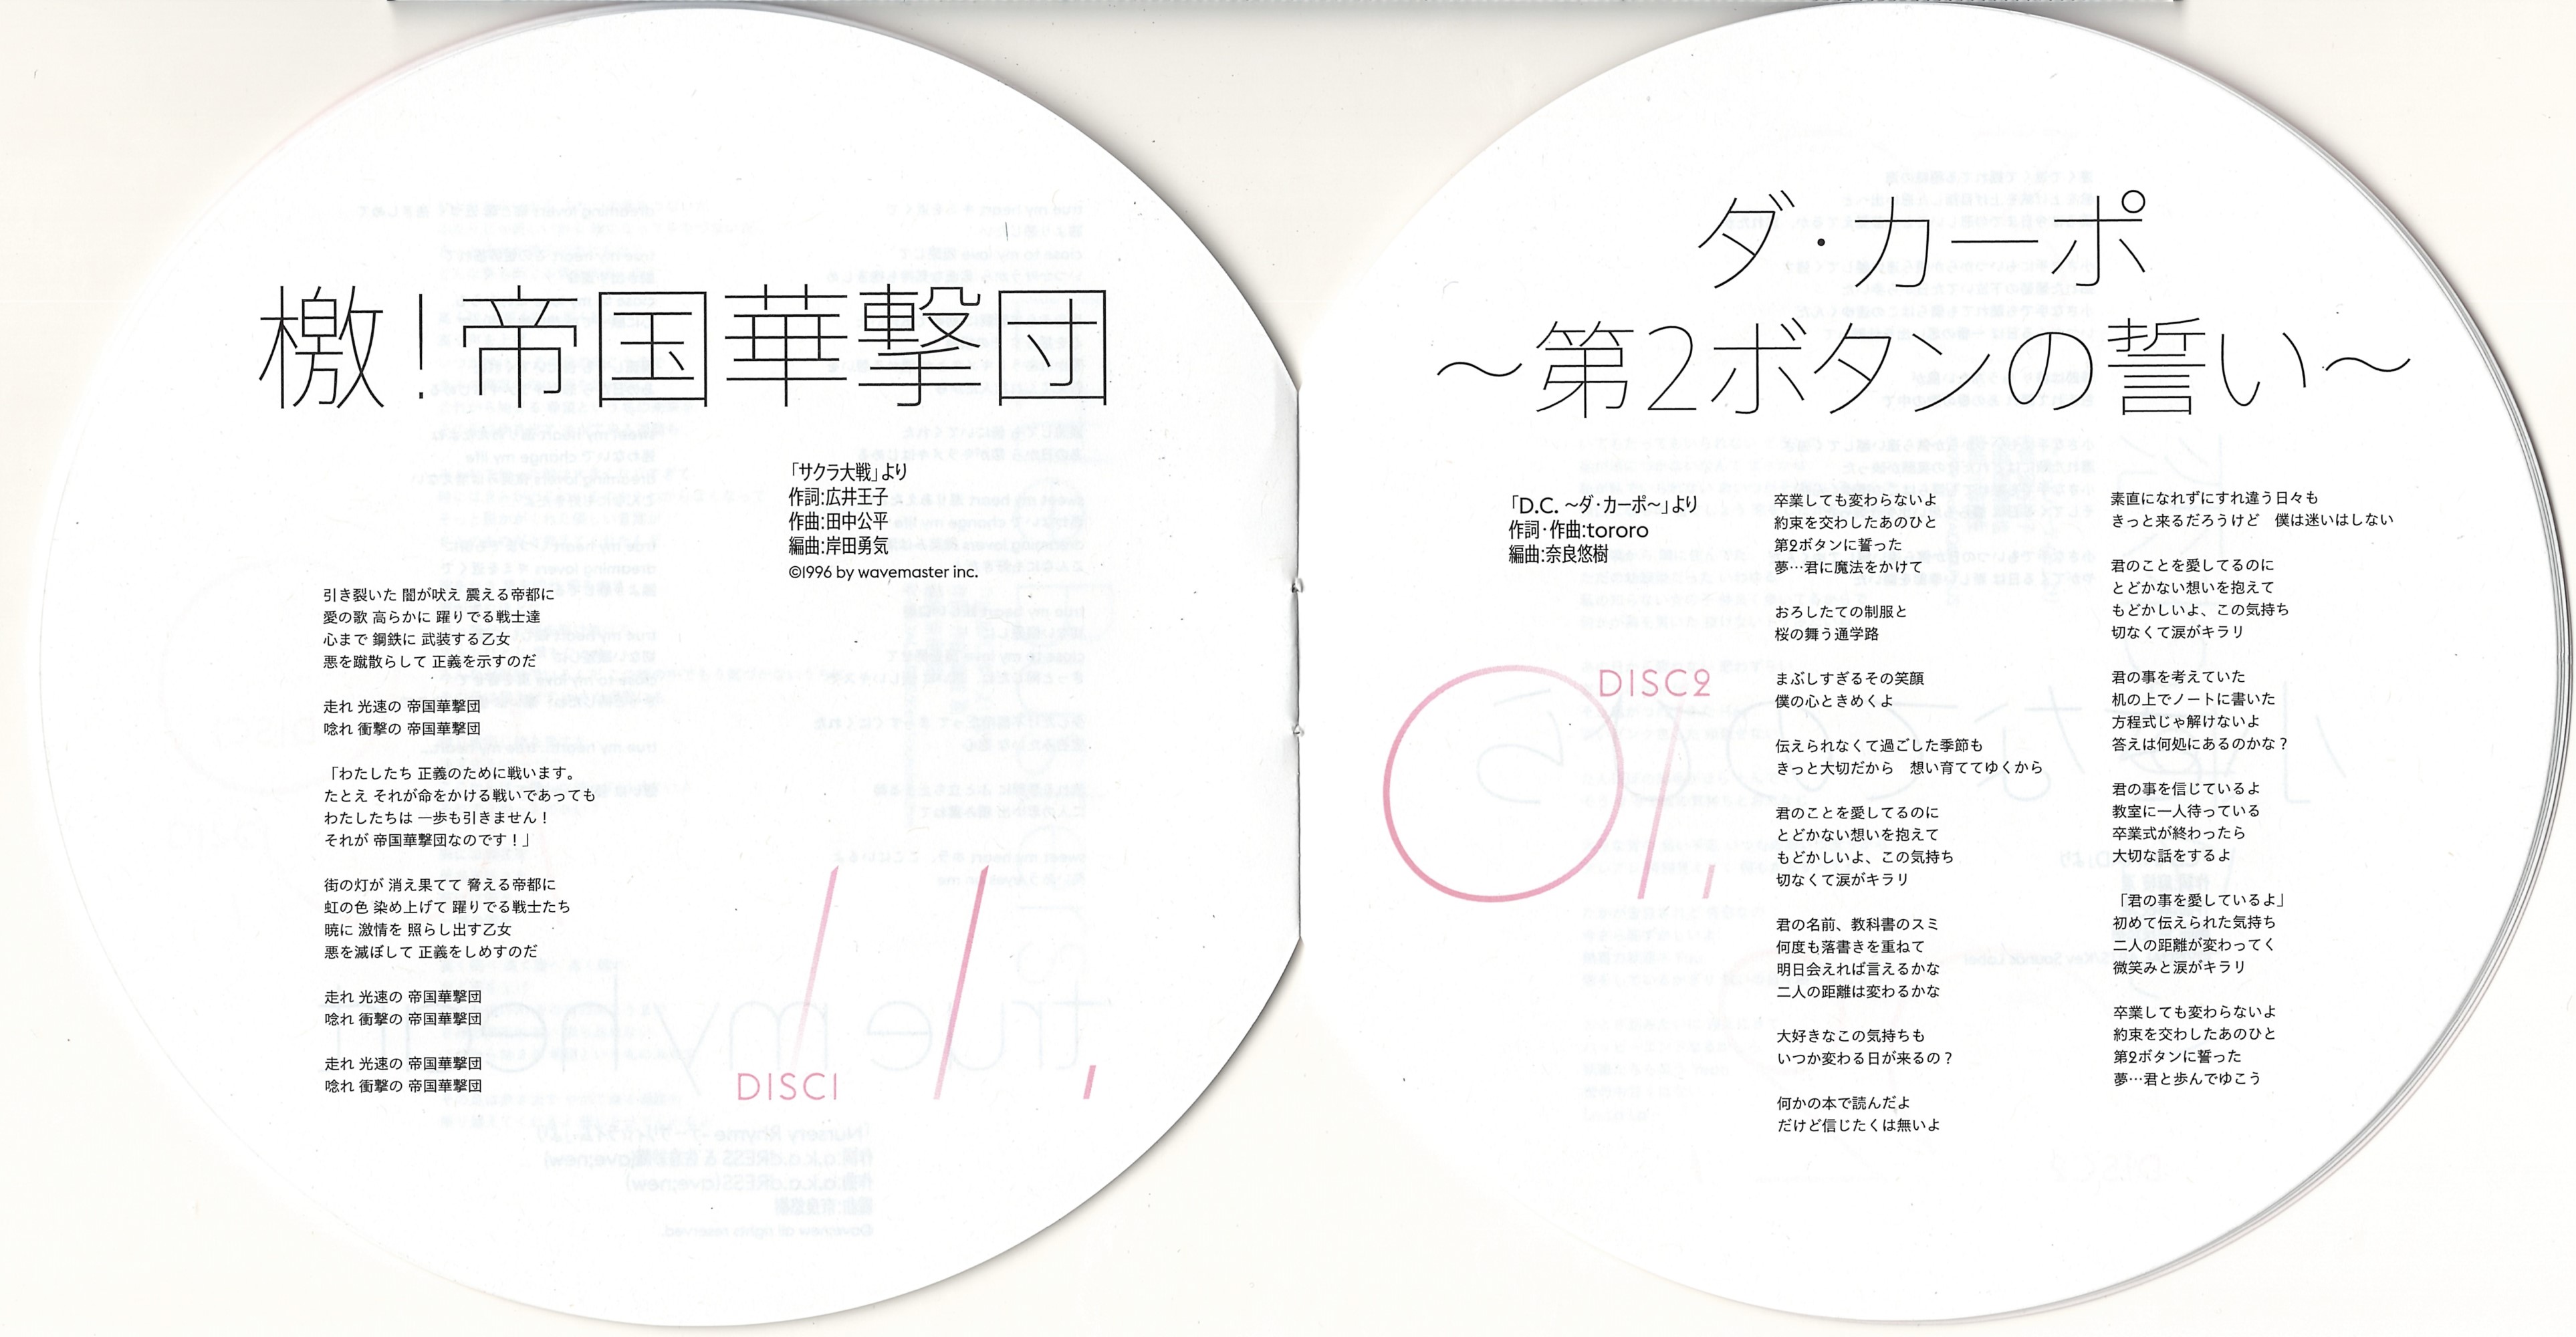 檄！帝国華撃団
「サクラ大戦」より
作詞:広井王子
作曲:田中公平
編曲:岸田勇気
©1996 by wavemaster inc.
引き裂いた 闇が吠え 震える帝都に
愛の歌 高らかに 躍りでる戦士達
心まで 鋼鉄に 武装する乙女
悪を蹴散らして 正義を示すのだ
走れ 光速の 帝国華撃団
唸れ 衝撃の 帝国華撃団
「わたしたち 正義のために戦います。
たとえ それが命をかける戦いであっても
わたしたちは 一歩も引きません！
それが 帝国華撃団なのです！」
街の灯が 消え果てて 脅える帝都に
虹の色 染め上げて 躍りでる戦士たち
暁に 激情を 照らし出す乙女
悪を滅ぼして 正義をしめすのだ
走れ 光速の 帝国華撃団
唸れ 衝撃の 帝国華撃団
走れ 光速の 帝国華撃団
唸れ 衝撃の 帝国華撃団
11.
DISC1
ダ・カーポ
〜第2ボタンの誓い〜
「D.C. 〜ダ・カーポ〜」より
作詞・作曲:tororo
編曲:奈良悠樹
DISC2
01.
卒業しても変わらないよ
約束を交わしたあのひと
第2ボタンに誓った
夢…君に魔法をかけて
おろしたての制服と
桜の舞う通学路
まぶしすぎるその笑顔
僕の心ときめくよ
伝えられなくて過ごした季節も
きっと大切だから　想い育ててゆくから
君のことを愛してるのに
とどかない想いを抱えて
もどかしいよ、この気持ち
切なくて涙がキラリ
君の名前、教科書のスミ
何度も落書きを重ねて
明日会えれば言えるかな
二人の距離は変わるかな
大好きなこの気持ちも
いつか変わる日が来るの？
何かの本で読んだよ
だけど信じたくは無いよ
素直になれずにすれ違う日々も
きっと来るだろうけど　僕は迷いはしない
君のことを愛してるのに
とどかない想いを抱えて
もどかしいよ、この気持ち
切なくて涙がキラリ
君の事を考えていた
机の上でノートに書いた
方程式じゃ解けないよ
答えは何処にあるのかな？
君の事を信じているよ
教室に一人待っている
卒業式が終わったら
大切な話をするよ
「君の事を愛しているよ」
初めて伝えられた気持ち
二人の距離が変わってく
微笑みと涙がキラリ
卒業しても変わらないよ
約束を交わしたあのひと
第2ボタンに誓った
夢…君と歩んでゆこう